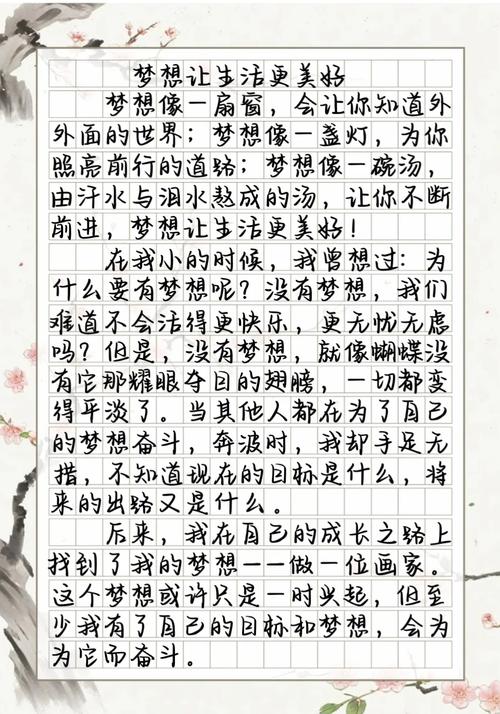 梦想让生活更美好
梦想像一扇窗，会让你知道外
外面的世界；梦想像一盏灯，为你
照亮前行的道路；梦想像一碗汤，
由汗水与泪水熬成的汤，让你不断
前进，梦想让生活更美好！
在我小的时候，我曾想过：为
什么要有梦想呢？没有梦想，我们
难道不会活得更快乐，更无忧无虑
吗？但是，没有梦想，就像蝴蝶没
有它那耀眼夺目的翅膀，一切都变
得平淡了。当其他人都在为了自己
的梦想奋斗，奔波时，我却手足无
措，不知道现在的目标是什么，将
来的出路又是什么。
后来，我在自己的成长之路上
找到了我的梦想——做一位画家。
这个梦想或许只是一时兴起，但至
少我有了自己的目标和梦想，会为
为它而奋斗。